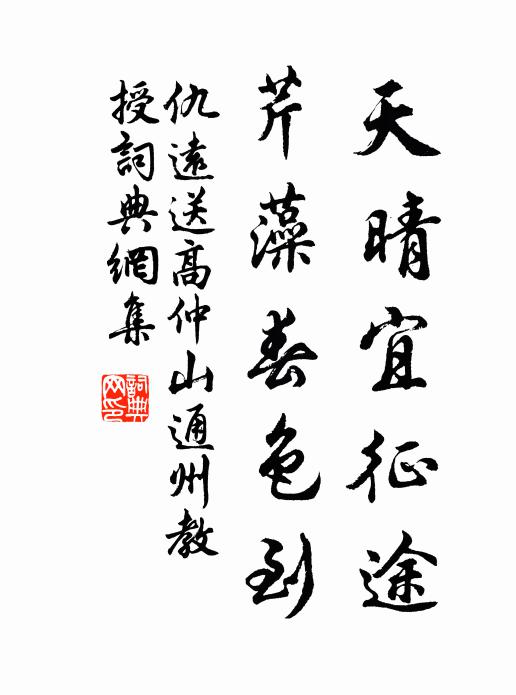 天晴宜征途
芹藻春色到
仇遠送高仲山通州教
授詞典網集
詞典
网印